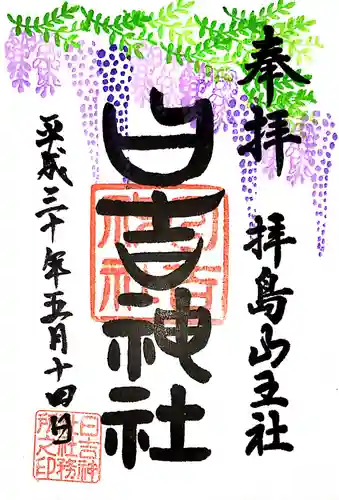 奉拝
拝島山王社
日吉神社
日吉神社
平成三十年五月十四日
日吉神
社社務
所之印